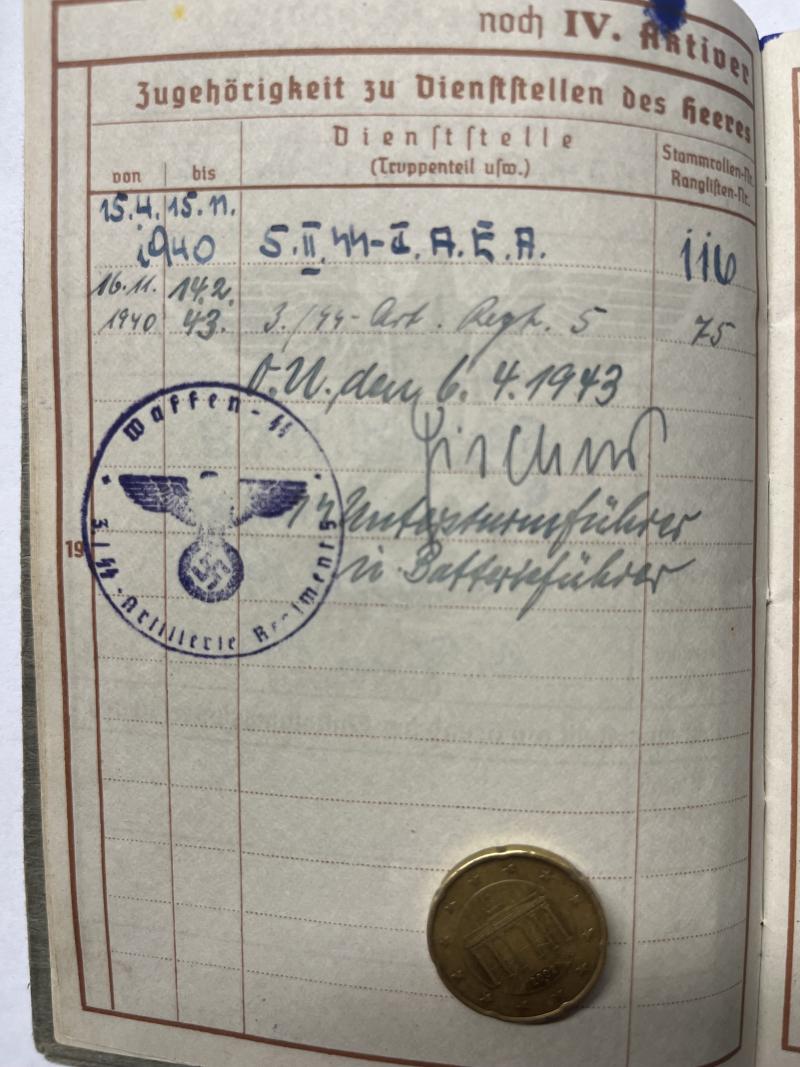 noch IV. Aktiver
Zugehörigkeit zu Dienststellen des Heeres
von bis
Dienststelle
(Truppenteil usw.)
Stammrollen-Nr.
Ranglisten-Nr.
15.4. 15.11.
1940 5.II.SS-T.A.E.A. 116
16.11. 14.2.
1940 43. 3./SS-Art. Regt. 5 75
O.U. den 6.4.1943
SS Untersturmführer
u. Batterieführer
19
Waffen-SS
3./SS-Artillerie Regiment 5